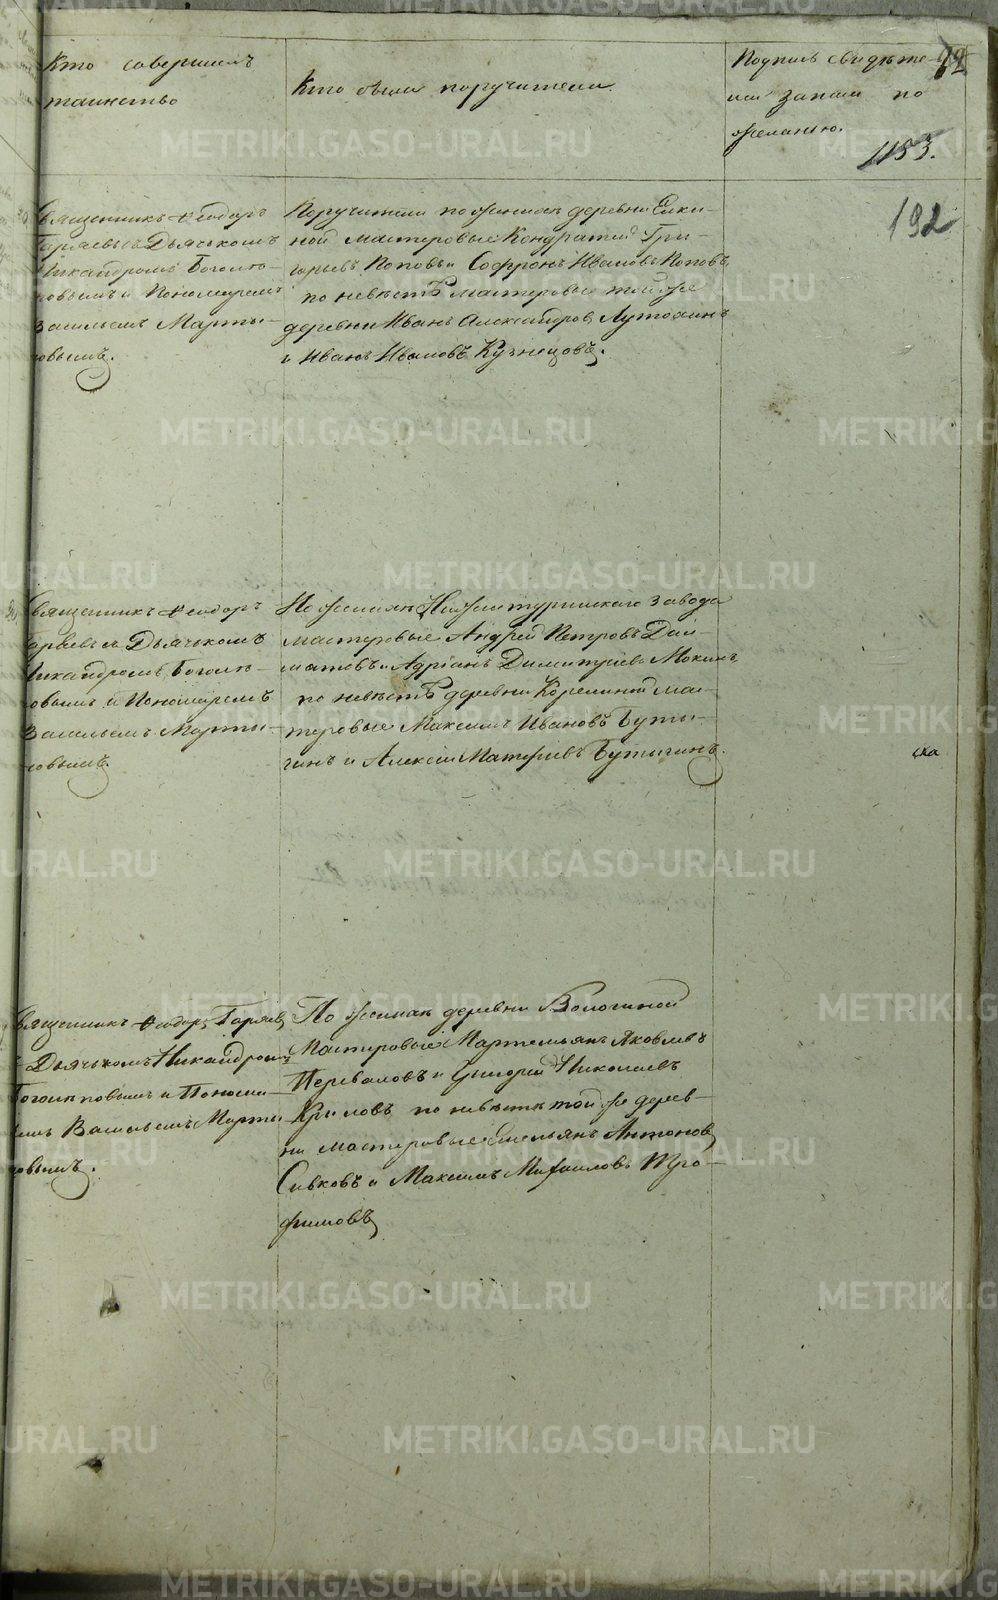 Кто совершалъ
таинство
Кто были поручители
Подпись свидѣте-
лей записи по
желанію.
72
1153.
192
Священникъ Ѳеодоръ
Гаряевъ съ Дьячкомъ
Никандромъ Боголю-
повымъ и Пономаремъ
Васильемъ Марты-
новымъ.
Поручители по женихѣ деревни Елки-
ной мастеровые Кондратій Гри-
горьевъ Поповъ и Софронъ Ивановъ Поповъ,
по невѣстѣ мастеровые той же
деревни Иванъ Александровъ Лутохинъ
и Иванъ Ивановъ Кузнецовъ.
Священникъ Ѳеодоръ
Гаряевъ съ Дьячкомъ
Никандромъ Боголю-
повымъ и Пономаремъ
Васильемъ Марты-
новымъ.
По женихѣ Нижнетуринскаго завода
мастеровые Андрей Петровъ Дол-
матовъ и Адріанъ Димитріевъ Мокинъ,
по невѣстѣ деревни Корелиной мас-
теровые Максимъ Ивановъ Буты-
гинъ и Алексѣй Матфіевъ Бутыгинъ.
ска
Священникъ Ѳеодоръ Гаряевъ
съ Дьячкомъ Никандромъ
Боголюповымъ и Понома-
ремъ Васильемъ Марты-
новымъ.
По женихѣ деревни Вологиной
Мастеровые Мартемьянъ Яковлевъ
Переваловъ и Григорій Николаевъ
Крыловъ по невѣстѣ той же дерев-
ни мастеровые Емельянъ Антоновъ
Сивковъ и Максимъ Михаиловъ Тро-
фимовъ
METRIKI.GASO-URAL.RU